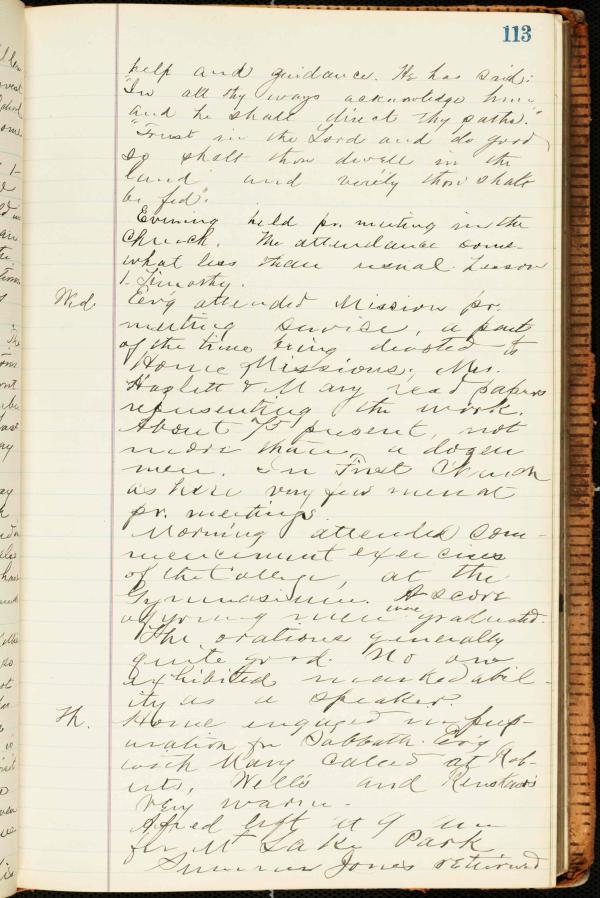 113
help and guidance. He has said:
"In all thy ways acknowledge him,
and he shall direct thy paths."
"Trust in the Lord and do good
so shalt thou dwell in the
land and verily thou shalt
be fed".
Evening held pr. meeting in the
Church. The attendance some-
what less than usual. Lesson
1. Timothy.
Wed. Ev'g attended Mission pr.
meeting service, a part
of the time being devoted to
Home Missions. Mrs.
Haglett & Mary read papers
representing the work.
About 75 present, not
more than a dozen
men. In First Church
as here very few men at
pr. meetings.
Morning attended com-
mencement exercises
of the College, at the
Gymnasium. A score
of young men were graduated.
The orations generally
quite good. No one
exhibited marked abil-
ity as a speaker.
Th. Home engaged in prep-
aration for Sabbath. Ev'g
with Mary called at Rob-
erts, Wells and
Very warm.
Alfred left at 9 am
for Mt Lake Park
Jones returned